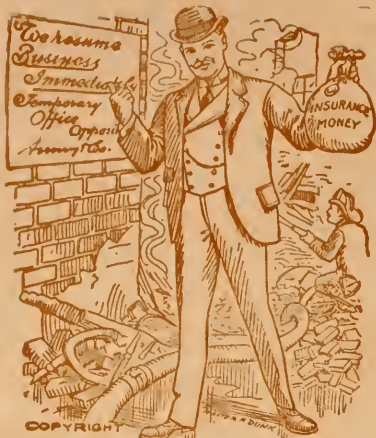 We Resume
Business
Immediately
Temporary
Office
Opposite
& Co.
INSURANCE
MONEY
COPYRIGHT